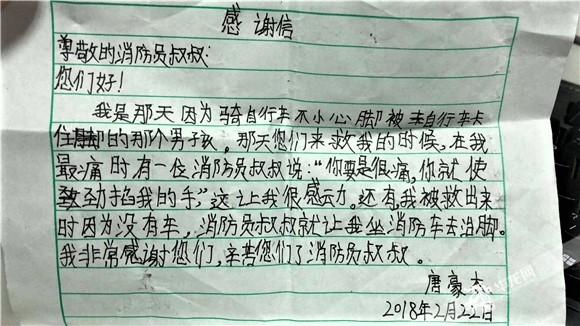 感谢信
尊敬的消防员叔叔:
您们好!
我是那天因为骑自行车不小心脚被自行车卡
住的那个男孩。那天您们来救我的时候,在我
最痛时有一位消防员叔叔说:“你要是很痛,你就使
劲掐我的手”,这让我很感动。还有,我被救出来
时因为没有车,消防员叔叔就让我坐消防车去治脚。
我非常感谢您们,辛苦您们了消防员叔叔。
唐豪
2018年2月22日